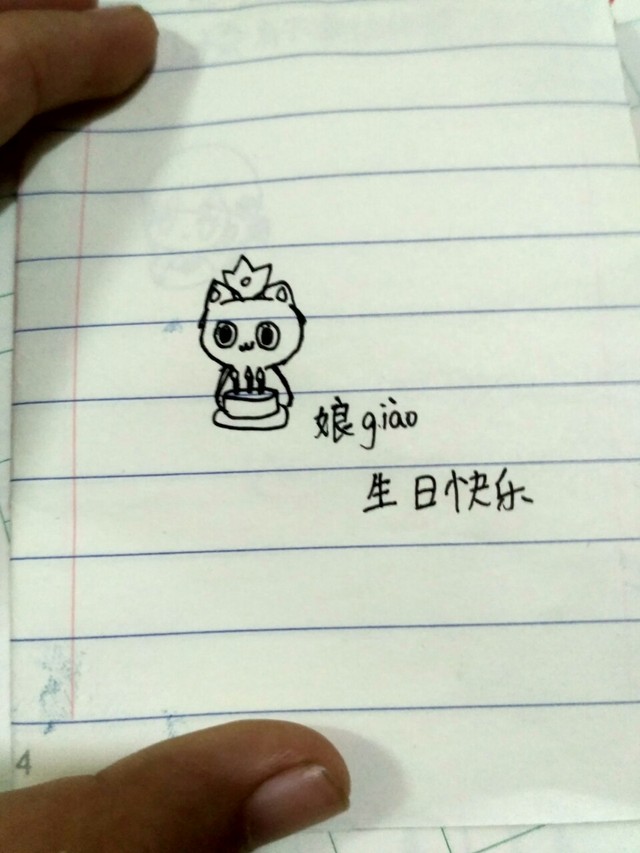 娘giào
生日快乐
4